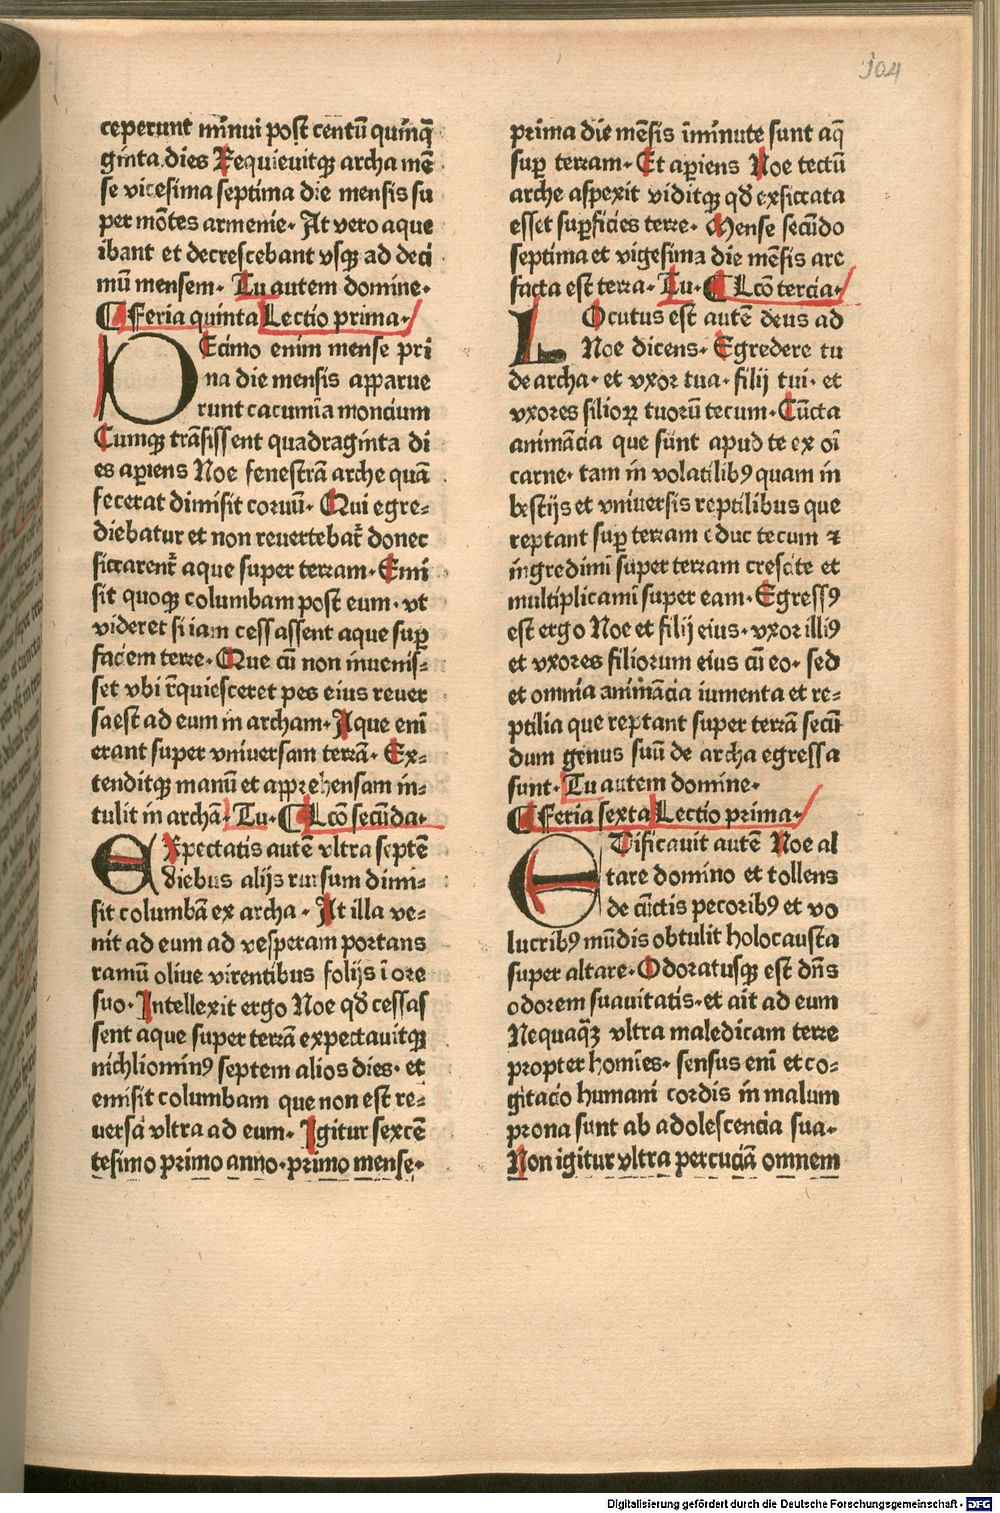 104
ceperunt minui post centū quinq̄
ginta dies Requieuitqꝫ archa mē
se vicesima septima die mensis su
per mōtes armenie. At vero aque
ibant et decrescebant vsqꝫ ad deci
mū mensem. Tu autem domine.
¶ Feria quinta Lectio prima.
DEcimo enim mense pri
na die mensis apparue
runt cacumīa moncium
Cumqꝫ trāsissent quadraginta di
es aꝑiens Noe fenestrā arche quā
fecerat dimisit coruū. Qui egre⸗
diebatur et non reuertebat̄ donec
siccarent̄ aque super terram. Emi
sit quoqꝫ columbam post eum. vt
videret si iam cessassent aque suꝑ
faciem terre. Que cū non inuenis⸗
set vbi r̄quiesceret pes eius reuer
sa est ad eum in archam. Aque enī
erant super vniuersam terrā. Ex⸗
tenditqꝫ manū et apprehensam in⸗
tulit in archā. Tu. ¶ Lcō secūda.
EXpectatis autē vltra septē
diebus alijs rursum dimi⸗
sit columbā ex archa. At illa ve⸗
nit ad eum ad vesperam portans
ramū oliue virentibus folijs ī ore
suo. Intellexit ergo Noe qd̄ cessas
sent aque super terrā expectauitqꝫ
nichliominꝰ septem alios dies. et
emisit columbam que non est re⸗
uersa vltra ad eum. Igitur sexcē
tesimo primo anno. primo mense.
prima die mēsis īminute sunt aq̄
suꝑ terram. Et aꝑiens Noe tectū
arche aspexit viditqꝫ qd̄ exsiccata
esset suꝑficies terre. Mense secūdo
septima et vigesima die mēsis are
facta est terra. Tu. ¶ Lcō tercia.
LOcutus est autē deus ad
Noe dicens. Egredere tu
de archa. et vxor tua. filij tui. et
vxores filioꝝ tuorū tecum. Cūcta
animācia que sunt apud te ex oī
carne. tam in volatilibꝰ quam in
bestijs et vniuersis reptilibus que
reptant suꝑ terram educ tecum ⁊
ingredimī super terram crescite et
multiplicamī super eam. Egressꝰ
est ergo Noe et filij eius. vxor illiꝰ
et vxores filiorum eius cū eo. sed
et omnia animācia iumenta et re⸗
ptilia que reptant super terrā secū
dum genus suū de archa egressa
sunt. Tu autem domine.
¶ Feria sexta Lectio prima.
ETificauit autē Noe al
tare domino et tollens
de cūctis pecoribꝰ et vo
lucribꝰ mūdis obtulit holocausta
super altare. Odoratusqꝫ est dn̄s
odorem suauitatis. et ait ad eum
Nequaq̄ꝫ vltra maledicam terre
propter homīes. sensus enī et co⸗
gitacio humani cordis in malum
prona sunt ab adolescencia sua.
Non igitur vltra percuciā omnem
Digitalisierung gefördert durch die Deutsche Forschungsgemeinschaft - DFG